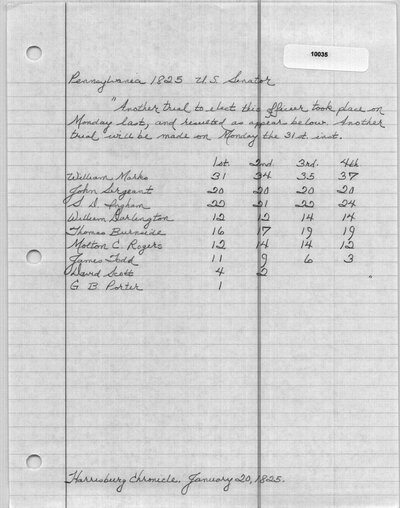 10035
Pennsylvania 1825 U.S. Senator
"Another trial to elect this officer took place on
Monday last, and resulted as appears below. Another
trial will be made on Monday the 31st. inst.
1st. 2nd. 3rd. 4th
William Marks 31 34 35 37
John Sergeant 20 20 20 20
S D Ingham 22 21 22 24
William Darlington 12 12 14 14
Thomas Burnside 16 17 19 19
Molton C. Rogers 12 14 14 12
James Todd 11 9 6 3
David Scott 4 2 "
G B Porter 1
Harrisburg Chronicle. January 20, 1825.